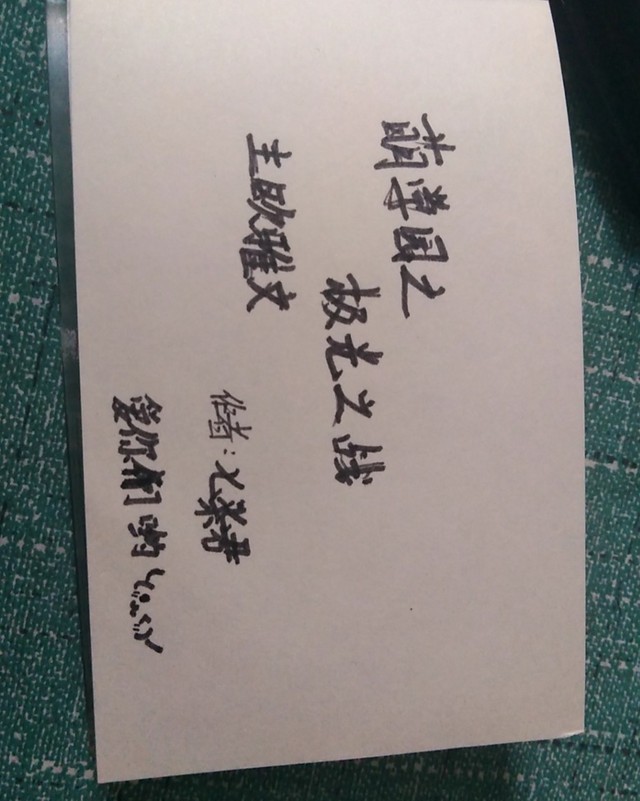 萌学园之
极光之战
主欧雅文
作者:七染君
爱你们哟